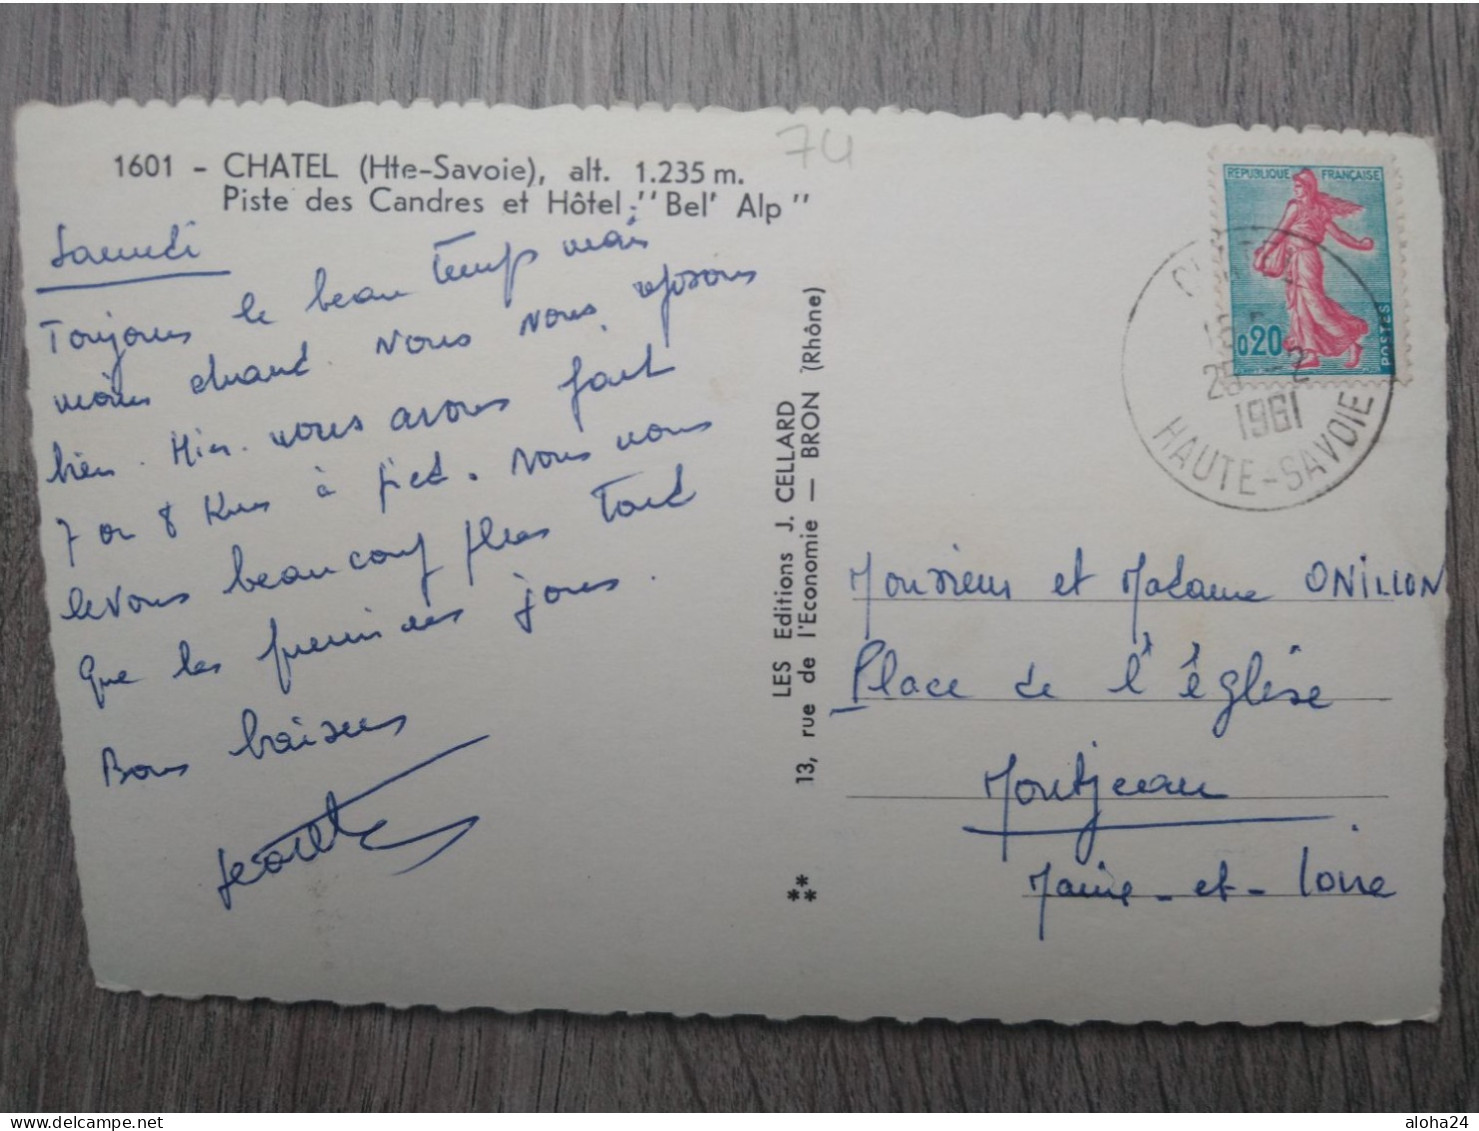 74
1601 - CHATEL (Hte-Savoie), alt. 1.235 m.
Piste des Candres et Hôtel "Bel' Alp"
Samedi
Toujours le beau temps mais
moins chaud. Nous nous reposons
bien. Hier nous avons fait
7 ou 8 Kms à pied. Nous nous
levons beaucoup plus tard
que les premiers jours.
Bons baisers
LES Editions J. CELLARD
13, rue de l'Economie — BRON (Rhône)
REPUBLIQUE FRANÇAISE
0,20
POSTES
1961
HAUTE-SAVOIE
Monsieur et Madame ONILLON
Place de l'église
Montjean
Maine-et-Loire
delcampe.net
aloha24